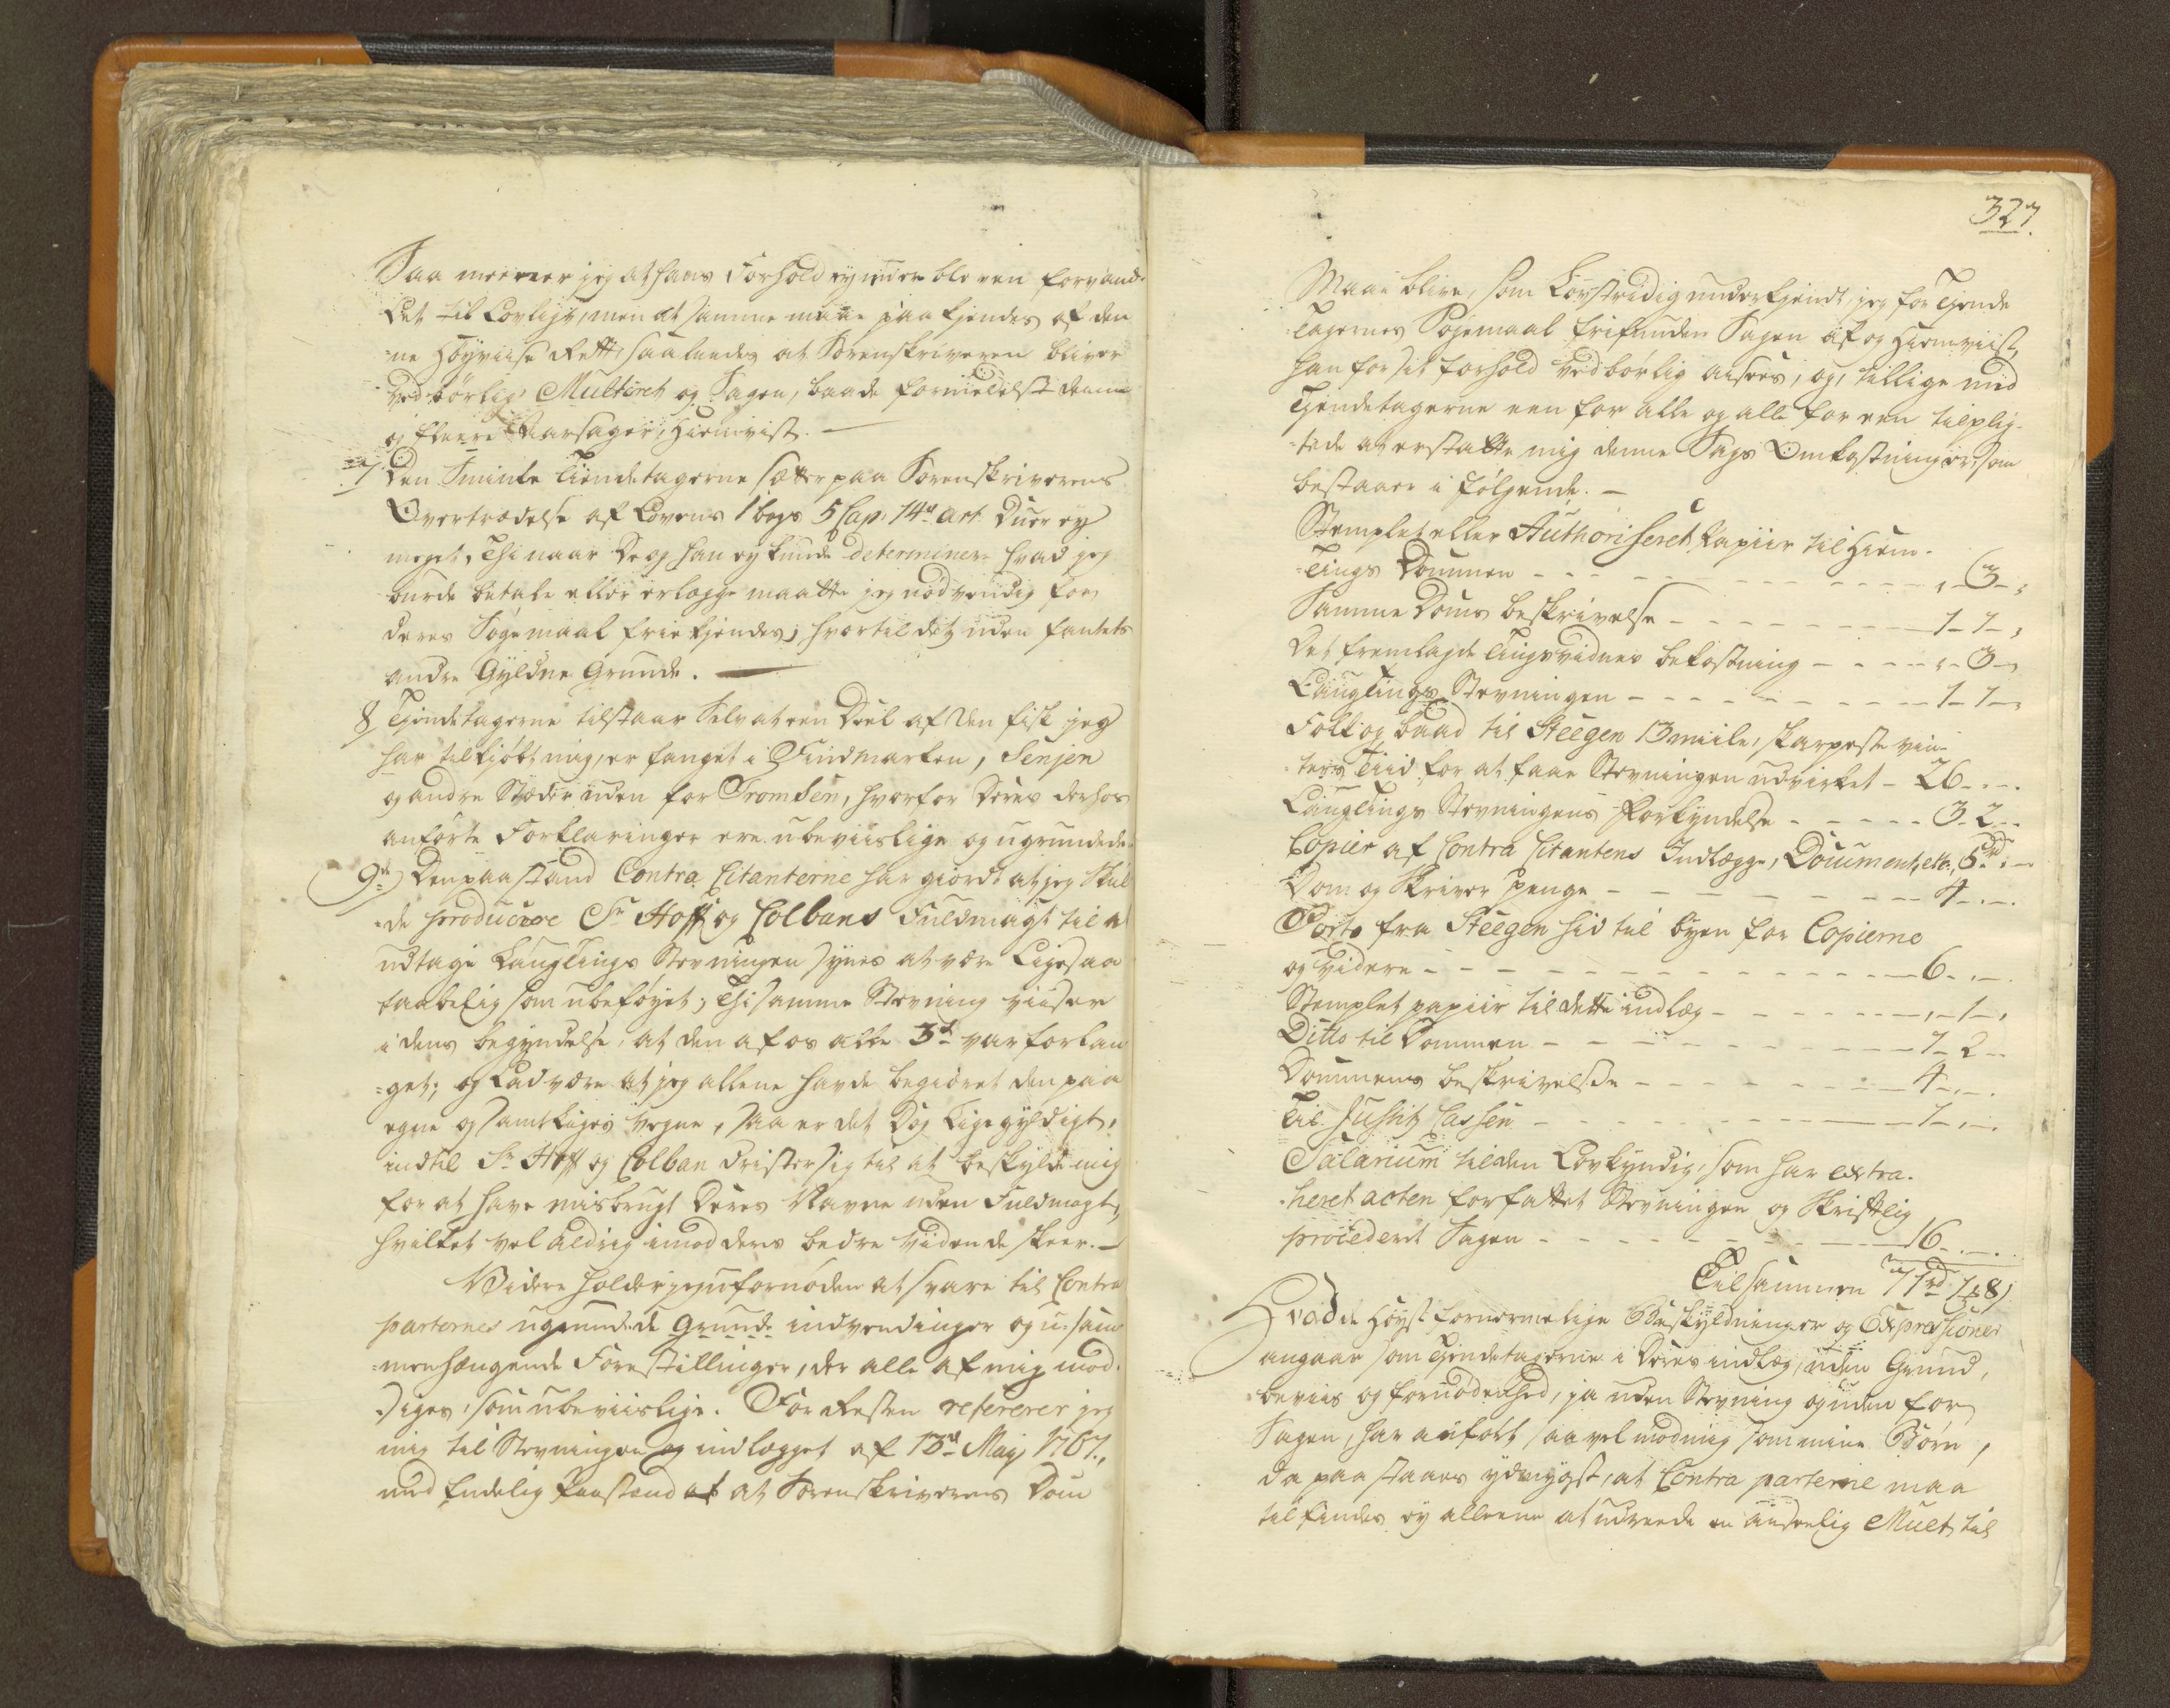 Saa meener jeg at hans Forhold ey uden bleven forvand-
let til Lovligt, men at samme maae paakjendes af den
ne Høyviise Rætt, saaledes at Sorenskriveren bliver
vedbørlig Mulcteret og Sagen, baade formedelst denne
og fleere Aarsager, hiemvist. —
7 Den Sminke Tiendetagerne sætter paa Sorenskriverens
Overtrædelse af Lovens 1 bogs 5 Cap. 14de art. duer ey
meget, Thi naar Dog han ey kunde determinere hvad jeg
burde betale eller erlægge maatte jeg nødvendig for
deres Søgemaal friekjendes, hvortil ditz uden fantets
andre Gyldne Grunde. —
8 Tjendetagerne tilstaar Selv at een Deel af den fisk jeg
har tilkjøbt mig, er fanget i Findmarken, Senjen
og andre Stæder uden for Tromsen, hvorfor Deres derhos
anførte Forklaringer ere ubeviislige og ugrundede.
9de) Den paastand Contra Citanterne har giordt at jeg skul
de producere Sr Hoff og Colbans Fuldmagt til at
udtage Laugtings Stevningen synes at være Ligesaa
taabelig som ubeføyet; Thi samme Stevning viiser
i dens begyndelse, at den af os alle 3de var forlan
get; og Lad være at jeg allene havde begiæret den paa
egne og samtliges vegne, saa er det Dog Ligegyldigt,
indtil Sr Hoff og Colban drister sig til at beskylde mig
for at have misbrugt Deres Navne uden Fuldmagt,
hvilket vel aldrig imod deres bedre vidende skeer. —
Videre holder jeg ufornøden at svare til Contra
parternes ugrundede Grunde indvendinger og u-sam
menhængende Forestillinger, der alle af mig mod-
siges, som ubeviislige. For Resten refererer jeg
mig til Stevningen og indlægget af 13de Maij 1767,
med Endelig Paastand at at Sorenskriverens Dom
327.
Maae blive, som Lovstridig underkjendt, jeg for Tjende
Tagernes Søgemaal frifunden Sagen af og hiemviist,
han for sit forhold vedbørlig ansees, og, tillige med
Tjendetagerne een for alle og alle for een tilplig-
tede at erstatte mig denne Sags Omkostninger, som
bestaaer i følgende. —
Stemplet eller Authoriseret Papiir til Hiem-
Tings Dommen - - - „ - 3 - „
Samme Doms beskrivelse - - - 1 - 1 - „
Det fremlagde Tingsvidnes bekostning - - - „ - 3 - „
Laugtings Stevningen - - - 1 - 1 - „
Folk og baad til Steegen 13 miile, skarpeste vin-
ters Tiid for at faae Stevningen udvirket - 26 - - -
Laugtings Stevningens Forkyndelse - - - 3 - 2 - -
Copier af Contra Citantens Indlægge, Document, etc., 5rd. -
Dom og Skriver penge - - - 4 - „ -
Porto fra Steegen hid til byen for Copierne
og videre - - - 6 - „ -
Stemplet papiir til dette indlæg - - - „ - 1 - „
Ditto til Dommen - - - 1 - 2 - -
Dommens beskrivelse - - - 4 - „ -
Til Justitz Cassen - - - 1 - „ -
Salarium til den Lovkyndig, som har extra-
heret acten forfattet Stevningen og Skriftlig
procederet Sagen - - - 16 - „ -
Tilsammen 71rd 1 ₰ 8)
Hvad de Høyst fornærmelige Beskyldninger og Expressioner
angaar som Tjendetagerne i Deres indlæg, uden Grund,
beviis og fornødenhed, ja uden Stevning og uden for
Sagen, har anført saavel mod mig som mine Børn,
da paastaaes ydmygst, at Contra parterne maa
tilfindes ey alleene at udreede en anseelig Mulct til